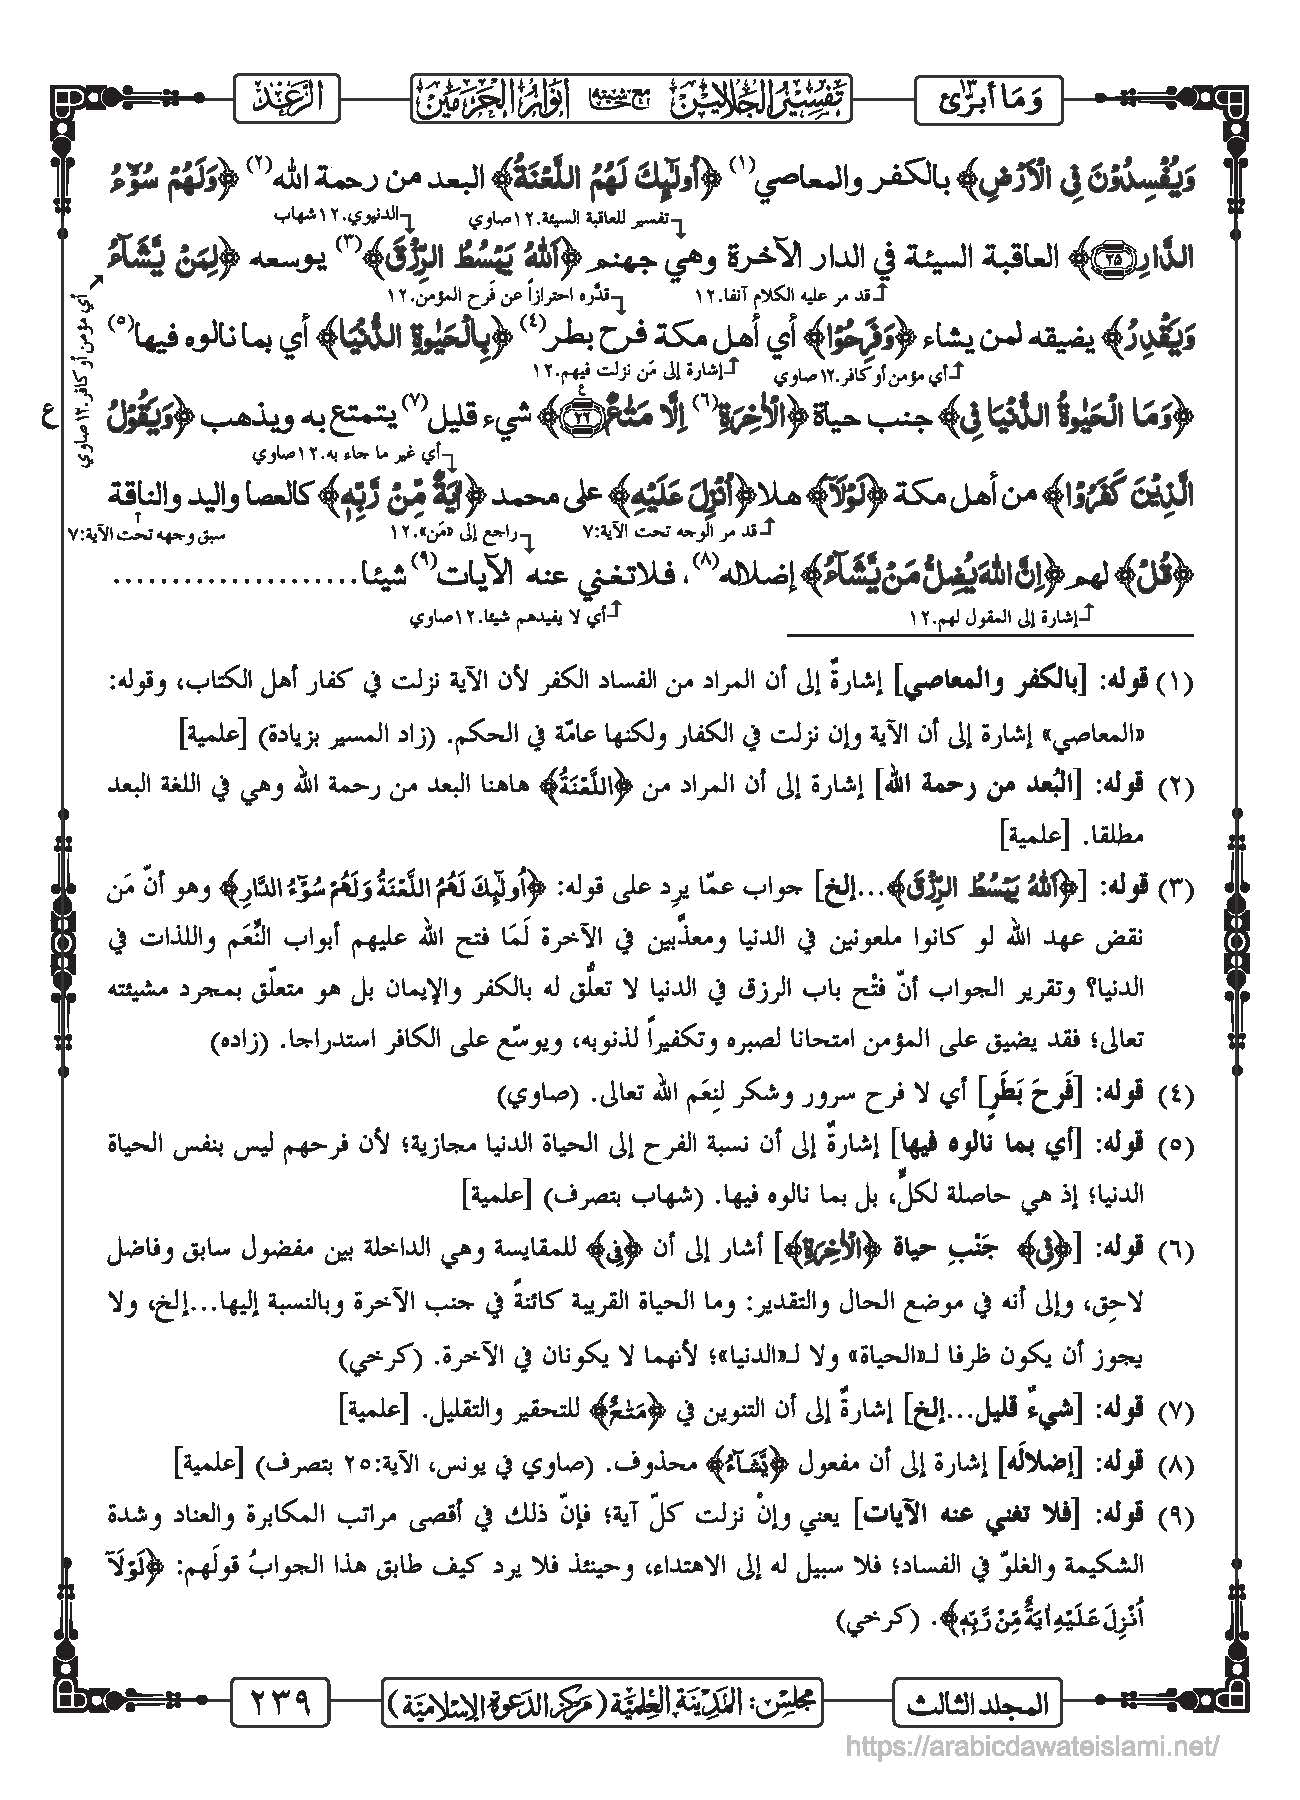 وَمَا أُبَرِّئُ ١٣
تفسير الجلالين مع حاشيته أنوار الحرمين
الرَّعْد
وَيُفْسِدُوْنَ فِي الْاَرْضِ﴾ بالكفر والمعاصي(١) ﴿اُولٰٓئِكَ لَهُمُ اللَّعْنَةُ﴾ البعد من رحمة الله(٢) ﴿وَلَهُمْ سُوْٓءُ
تفسير للعاقبة السيئة.١٢صاوي
الدنيوي.١٢شهاب
الدَّارِ ﴿٢٥﴾﴾ العاقبة السيئة في الدار الآخرة وهي جهنم ﴿اَللّٰهُ يَبْسُطُ الرِّزْقَ﴾(٣) يوسعه ﴿لِمَنْ يَّشَآءُ
أي مؤمن أو كافر.١٢صاوي
قد مر عليه الكلام آنفا.١٢
قدَّره احترازاً عن فَرح المؤمن.١٢
وَيَقْدِرُ﴾ يضيقه لمن يشاء ﴿وَفَرِحُوْا﴾ أي أهل مكة فرح بطر(٤) ﴿بِالْحَيٰوةِ الدُّنْيَا﴾ أي بما نالوه فيها(٥)
أي مؤمن أو كافر.١٢صاوي
إشارة إلى مَن نزلت فيهم.١٢
﴿وَمَا الْحَيٰوةُ الدُّنْيَا فِي﴾ جنب حياة ﴿الْاٰخِرَةِ(٦) اِلَّا مَتَاعٌ ﴿٢٦﴾﴾ شيء قليل(٧) يتمتع به ويذهب ﴿وَيَقُوْلُ
ع
أي غير ما جاء به.١٢صاوي
الَّذِيْنَ كَفَرُوْا﴾ من أهل مكة ﴿لَوْلَآ﴾ هلا ﴿اُنْزِلَ عَلَيْهِ﴾ على محمد ﴿اٰيَةٌ مِّنْ رَّبِّهٖ﴾ كالعصا واليد والناقة
قد مر الوجه تحت الآية:٧
راجع إلى «مَن».١٢
سبق وجهه تحت الآية:٧
﴿قُلْ﴾ لهم ﴿اِنَّ اللهَ يُضِلُّ مَنْ يَّشَآءُ﴾ إضلاله(٨)، فلا تغني عنه الآيات(٩) شيئا.....................
إشارة إلى المقول لهم.١٢
أي لا يفيدهم شيئا.١٢صاوي
(١) قوله: [بالكفر والمعاصي] إشارةٌ إلى أن المراد من الفساد الكفر لأن الآية نزلت في كفار أهل الكتاب، وقوله:
«المعاصي» إشارة إلى أن الآية وإن نزلت في الكفار ولكنها عامّة في الحكم. (زاد المسير بزيادة) [علمية]
(٢) قوله: [البُعد من رحمة الله] إشارة إلى أن المراد من ﴿اللَّعْنَةُ﴾ هاهنا البعد من رحمة الله وهي في اللغة البعد
مطلقا. [علمية]
(٣) قوله: [﴿اَللّٰهُ يَبْسُطُ الرِّزْقَ﴾...إلخ] جواب عمّا يرِد على قوله: ﴿اُولٰٓئِكَ لَهُمُ اللَّعْنَةُ وَلَهُمْ سُوْٓءُ الدَّارِ﴾ وهو أنّ مَن
نقض عهد الله لو كانوا ملعونين في الدنيا ومعذَّبين في الآخرة لَمَا فتح الله عليهم أبواب النِّعَم واللذات في
الدنيا؟ وتقرير الجواب أنّ فتْح باب الرزق في الدنيا لا تعلُّق له بالكفر والإيمان بل هو متعلّق بمجرد مشيئته
تعالى؛ فقد يضيق على المؤمن امتحانا لصبره وتكفيراً لذنوبه، ويوسّع على الكافر استدراجا. (زاده)
(٤) قوله: [فَرحَ بَطَرٍ] أي لا فرح سرور وشكر لنِعَم الله تعالى. (صاوي)
(٥) قوله: [أي بما نالوه فيها] إشارةٌ إلى أن نسبة الفرح إلى الحياة الدنيا مجازية؛ لأن فرحهم ليس بنفس الحياة
الدنيا؛ إذ هي حاصلة لكلٍّ، بل بما نالوه فيها. (شهاب بتصرف) [علمية]
(٦) قوله: [﴿فِي﴾ جَنْبِ حياة ﴿الْاٰخِرَةِ﴾] أشار إلى أن ﴿فِي﴾ للمقايسة وهي الداخلة بين مفضول سابق وفاضل
لاحِق، وإلى أنه في موضع الحال والتقدير: وما الحياة القريبة كائنةً في جنب الآخرة وبالنسبة إليها...إلخ، ولا
يجوز أن يكون ظرفا لـ«الحياة» ولا لـ«الدنيا»؛ لأنهما لا يكونان في الآخرة. (كرخي)
(٧) قوله: [شيءٌ قليل...إلخ] إشارةٌ إلى أن التنوين في ﴿مَتَاعٌ﴾ للتحقير والتقليل. [علمية]
(٨) قوله: [إضلالَه] إشارة إلى أن مفعول ﴿يَّشَآءُ﴾ محذوف. (صاوي في يونس، الآية:٢٥ بتصرف) [علمية]
(٩) قوله: [فلا تغني عنه الآيات] يعني وإنْ نزلت كلّ آية؛ فإنّ ذلك في أقصى مراتب المكابرة والعناد وشدة
الشكيمة والغلوّ في الفساد؛ فلا سبيل له إلى الاهتداء، وحينئذ فلا يرد كيف طابق هذا الجوابُ قولَهم: ﴿لَوْلَآ
اُنْزِلَ عَلَيْهِ اٰيَةٌ مِّنْ رَّبِّهٖ﴾. (كرخي)
المجلد الثالث
مجلس: المدينة العلمية (مركز الدعوة الإسلامية)
٢٣٩
https://arabicdawateislami.net/